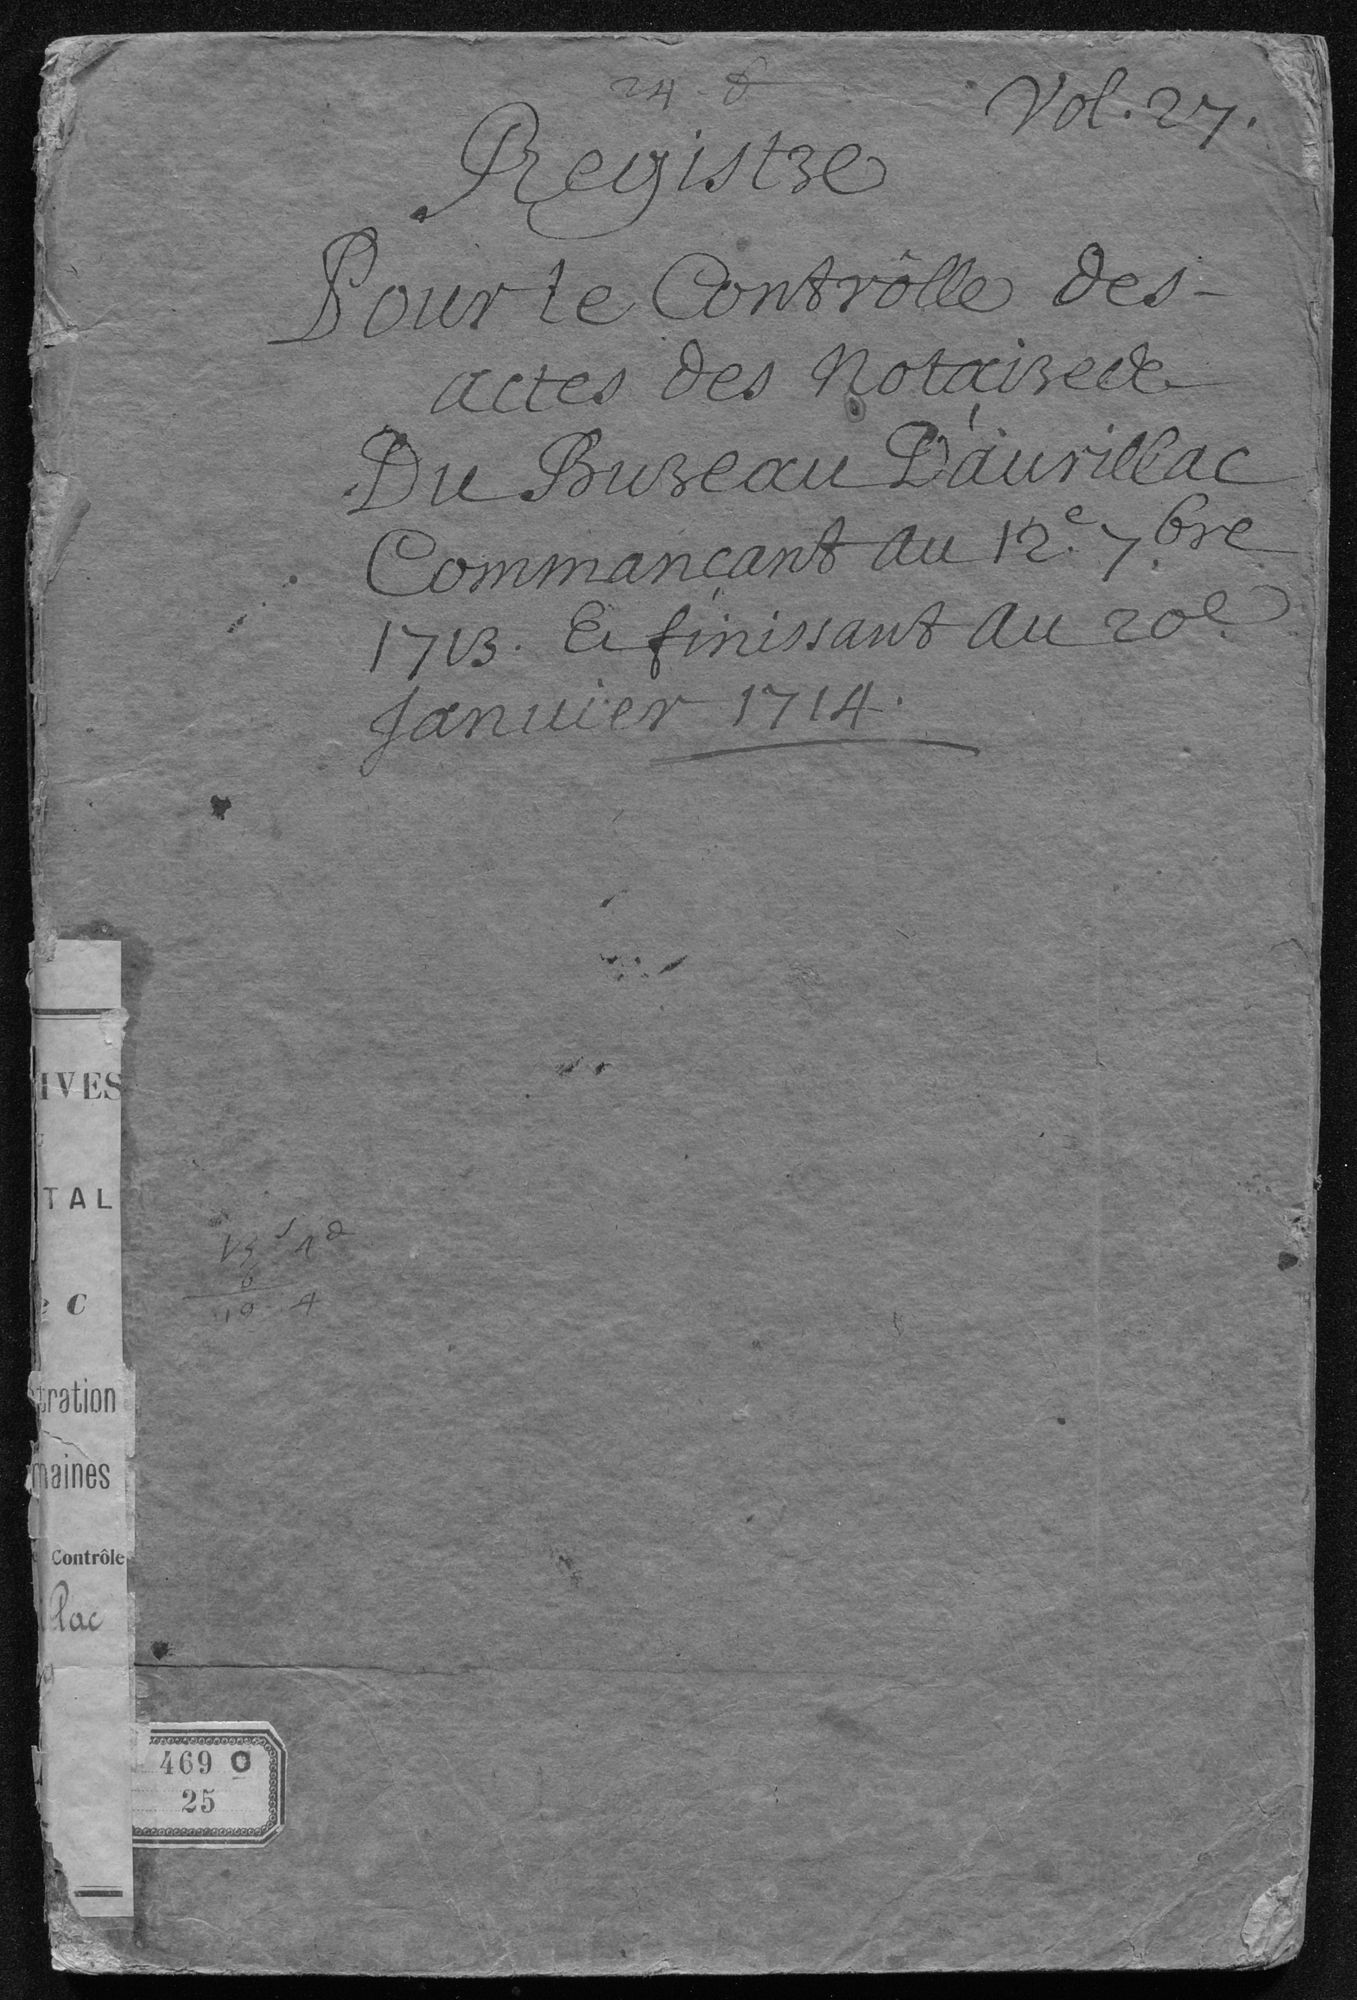 24
Vol. 27.
Registre
Pour le Contrôlle des
actes des Notaires
Du Bureau D'aurillac
Commançant du 12e. 7bre
1713. Et finissant au 20e.
Janvier 1714.
IVES
TAL
C
tration
maines
Contrôle
llac
4
10 4
469 O
25